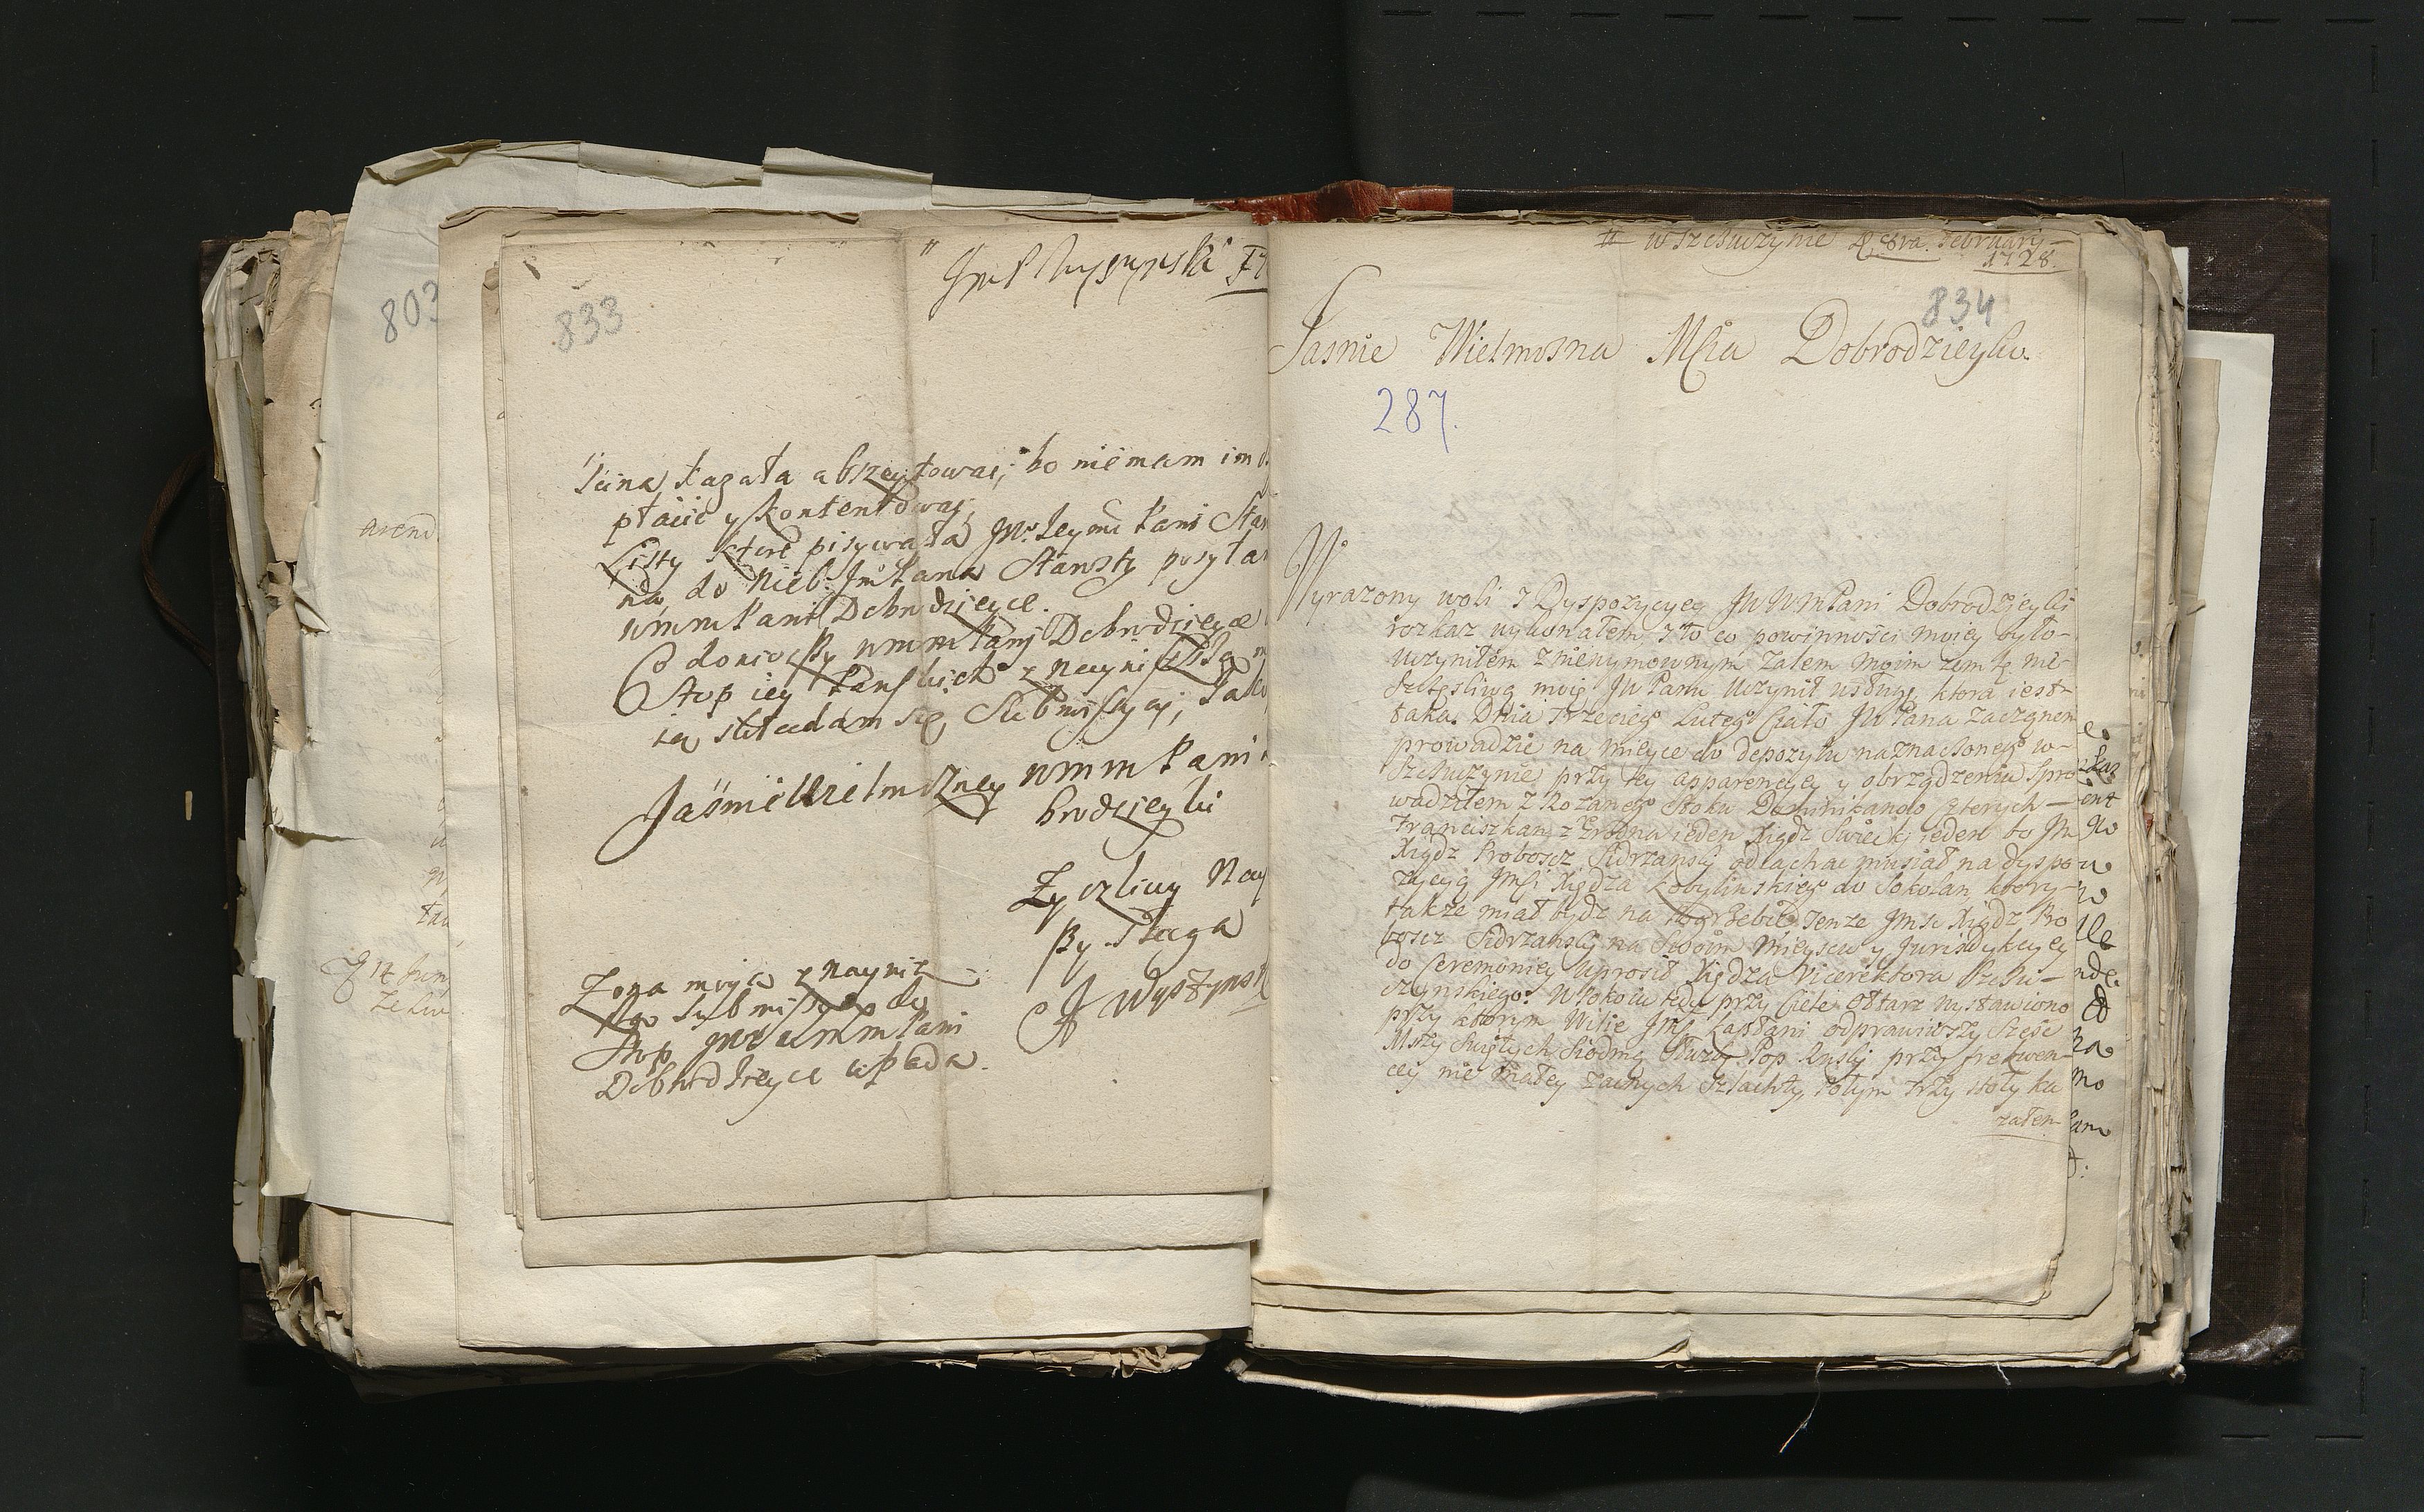 803
833
Iúna kazała abszeytować, bo niemam im
płacić y kontentować,
Listy które pisywała Jw Jeymć Pani
na, do Nieb Jm Pana Starosty posyłam
wmm Pani Dobrodzieyce.
Co doniosszy wmm Panj Dobrodzieyce
Stop iey Pańskich z nayniszszą
ią składam się, Submissyąj,
Jaśnie Wielmozney wmm Pani
brodzieyki
Zyczliwy Nay
szy Sługa
J Wyszyńsk
Zona moja z nayniz
szą Submissyą do
Stop Jwe wmm Pani
Dobrodzieyce upada.
w Szczuczynie D. 8va. February
1728.
834
Jasnie Wielmozna Mścia Dobrodzieyko.
287.
Wyrazony woli y Dyspozycyey JW WM Pani Dobrodzieyki
rozkaz wykonałem, y to co powinnosci moiey było
uczyniłem z nieuymownym zalem moim zem tę nie
szczęsliwą moię JW Panu uczynił usługę, ktora iest
taka. Dnia trzeciego Lutego Ciało JW Pana zacząnem
prowadzic na mieysce do depozytu naznaczonego w
Szczuczynie przy tey apparencyey y obrządzeniu Spro
wadziłem z Rozanego Stoku Dominikanow czterych
Franciszkan z Grodna ieden Xiądz Swiecki ieden bo Jm
Xiądz Proboscz Sidrzanski odiachac musiał na dyspo
zycyą Jmści Xiędza Kobylinskiego do Sokolan, ktory
takze miał bydz na Pogrzebie. Tenze Jmsc Xiądz Pro
boscz Sidrzanski na Swoim mieyscu y Jurisdykcyey
do Ceremoniey uprosił Xiędza Vicerektora Szczu
czynskiego. W Pokoiu tedy przy Ciele ołtarz wystawiono
przy ktorym Wilie Jmść Kapłani odprawiwszy Szesc
Mszy Swiętych Siodmą Słuzbę Pop Ruski przy frekwen
cey nie małey zacnych Szlachty, Potym trzy stoły ka
załem